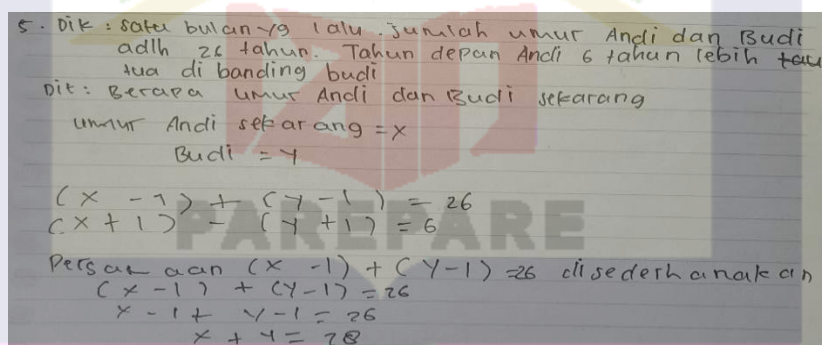 5. Dik : satu bulan yg lalu. jumlah umur Andi dan Budi
adlh 26 tahun. Tahun depan Andi 6 tahun lebih
tua di banding budi
Dit : Berapa umur Andi dan Budi sekarang
umur Andi sekarang = x
Budi = y
(x - 1) + (y - 1) = 26
(x + 1) - (y + 1) = 6
PAREPARE
Persamaan (x - 1) + (y - 1) = 26 disederhanakan
(x - 1) + (y - 1) = 26
x - 1 + y - 1 = 26
x + y = 28